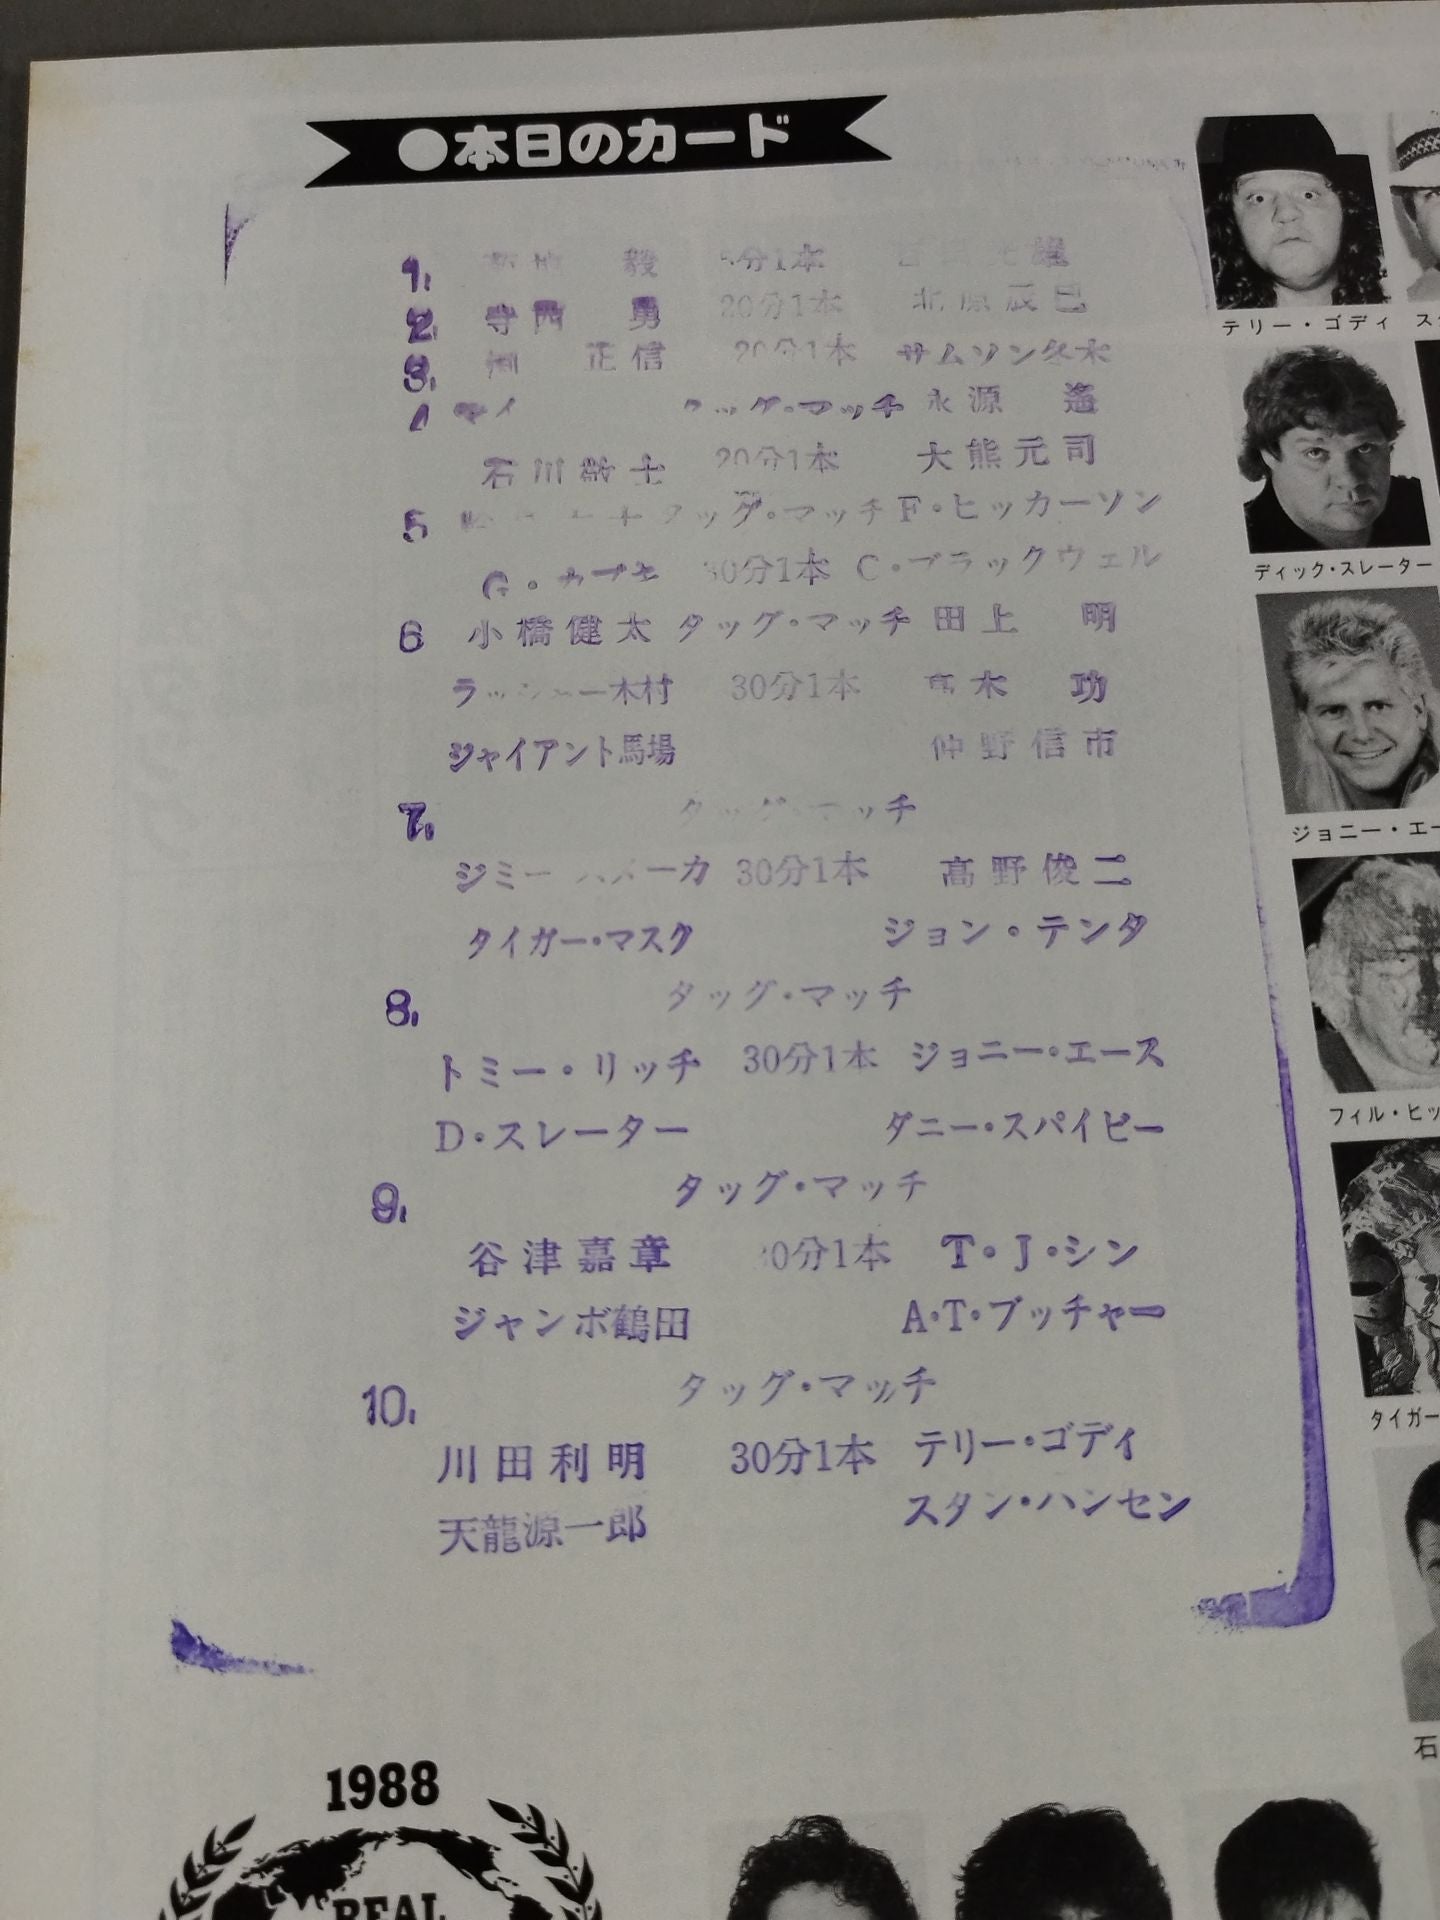 ●本日のカード
1. 毅 分1本
2. 寺西 勇 20分1本 北原辰巳
3. 渕 正信 20分1本 サムソン冬木
タッグ・マッチ 永源 遙
石川敬士 20分1本 大熊元司
5 タッグ・マッチ F・ヒッカーソン
G・カブキ 30分1本 C・ブラックウェル
6 小橋健太 タッグ・マッチ 田上 明
ラッシャー木村 30分1本 高木 功
ジャイアント馬場 仲野信市
7. タッグ・マッチ
ジミー・スヌーカ 30分1本 高野俊二
タイガー・マスク ジョン・テンタ
8. タッグ・マッチ
トミー・リッチ 30分1本 ジョニー・エース
D・スレーター ダニー・スパイビー
9. タッグ・マッチ
谷津嘉章 30分1本 T・J・シン
ジャンボ鶴田 A・T・ブッチャー
10. タッグ・マッチ
川田利明 30分1本 テリー・ゴディ
天龍源一郎 スタン・ハンセン
テリー・ゴディ ス
ディック・スレーター
ジョニー・エー
フィル・ヒッ
タイガー
石
1988
REAL